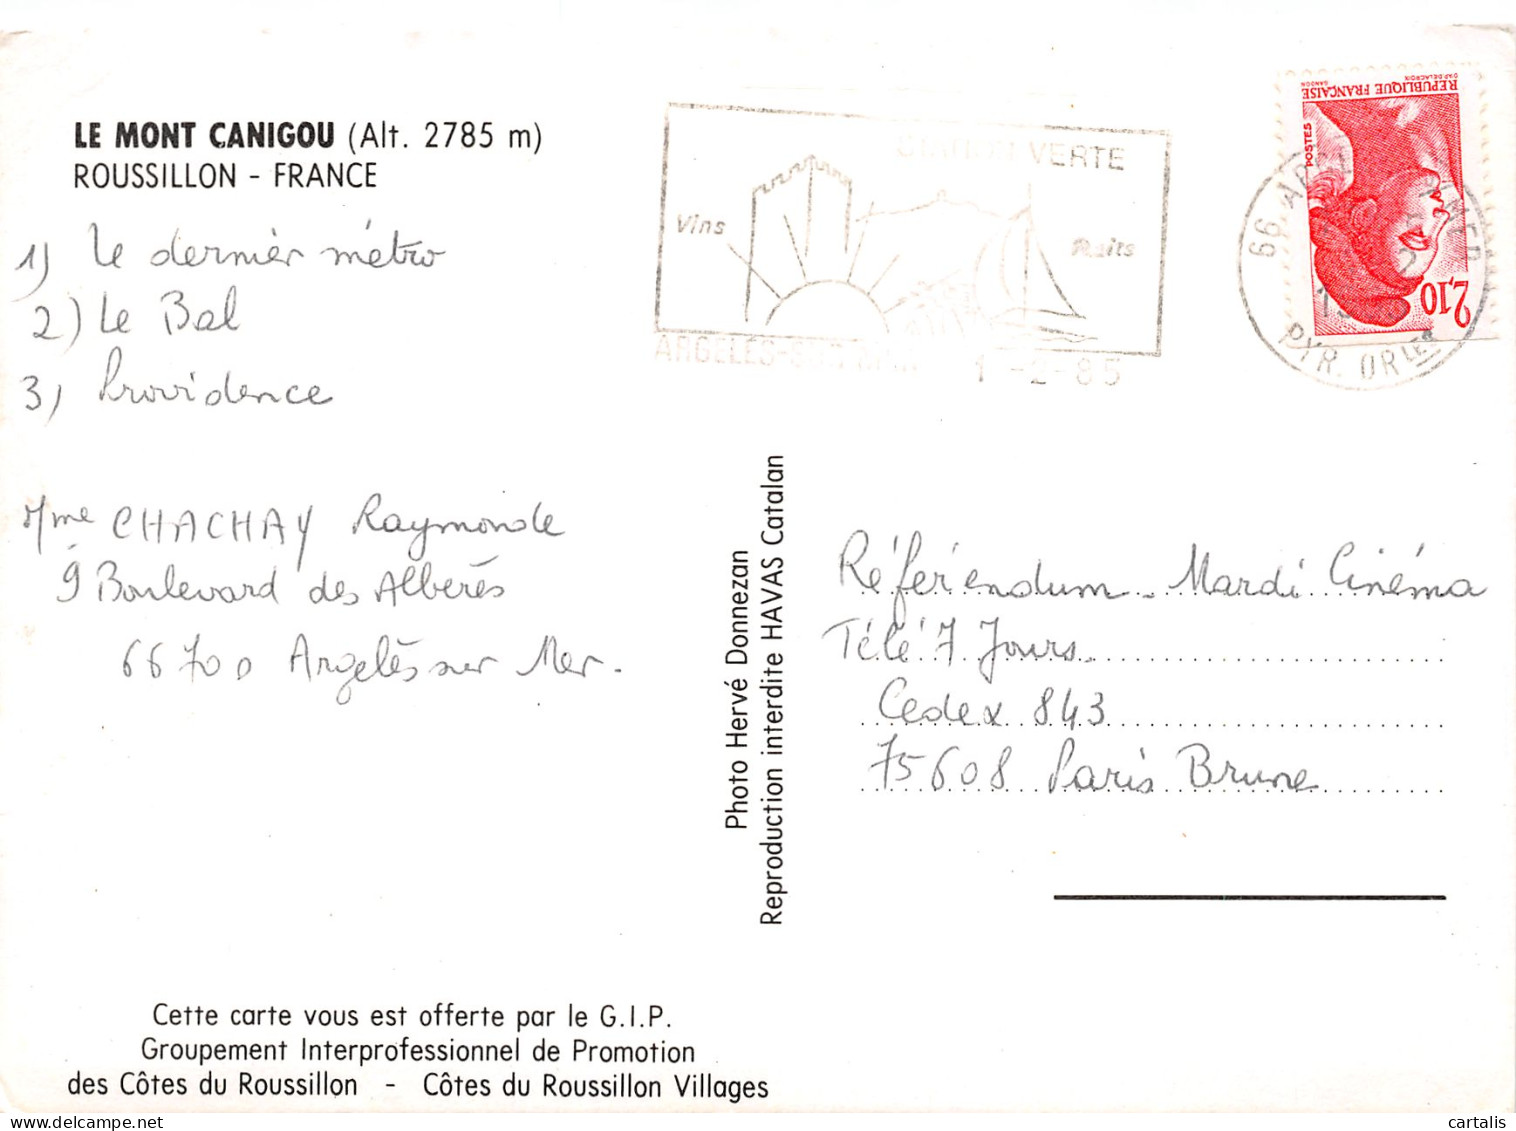 LE MONT CANIGOU (Alt. 2785 m)
ROUSSILLON - FRANCE
1) Le dernier métro
2) Le Bal
3) Providence
Mme CHACHAY Raymonde
9 Boulevard des Albères
66700 Argelès sur Mer.
Cette carte vous est offerte par le G.I.P.
Groupement Interprofessionnel de Promotion
des Côtes du Roussillon - Côtes du Roussillon Villages
Photo Hervé Donnezan
Reproduction interdite HAVAS Catalan
STATION VERTE
Vins
ARGELES-SUR MER 1-2-85
66 PYR. ORLES
RÉPUBLIQUE FRANÇAISE
POSTES
2,10
Référendum. Mardi Cinéma
Télé 7 Jours.
Cedex 843
75608 Paris Brune
cartalis